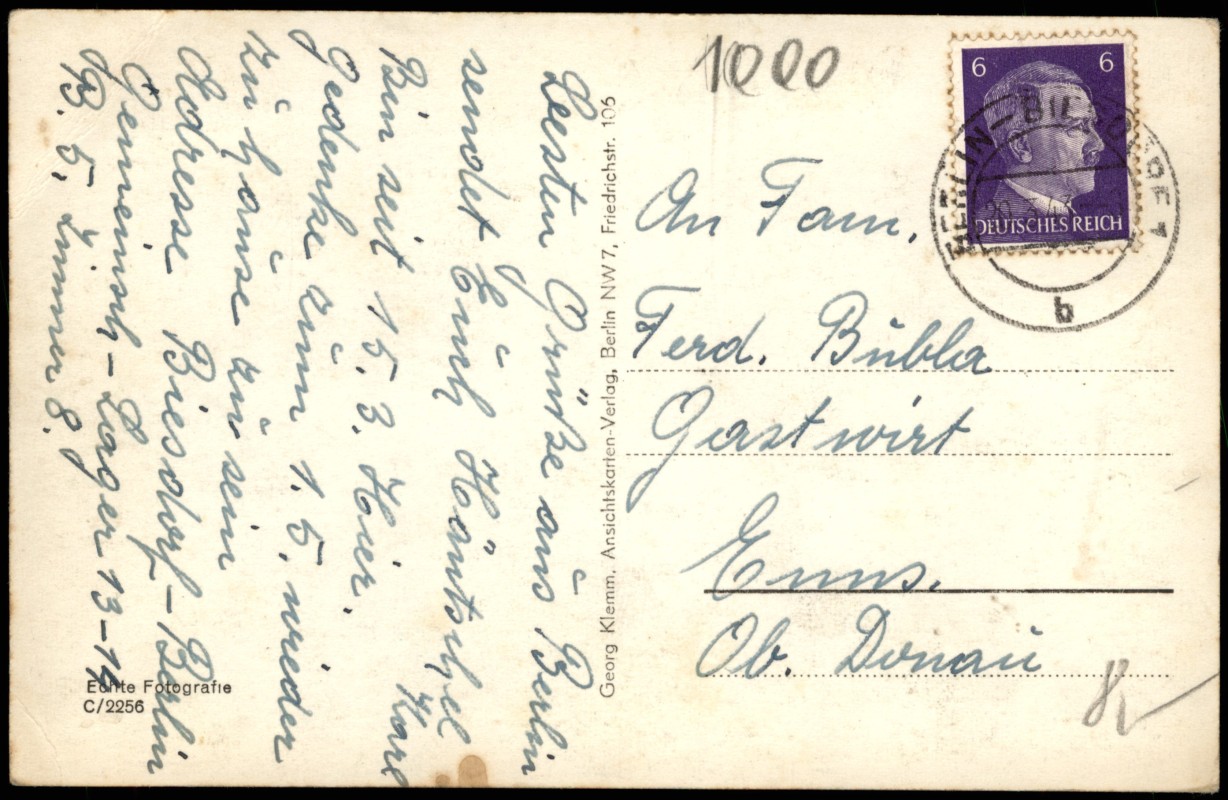 Besten Grüße aus Berlin
sendet Euch Häntschel
Karl
Bin seit 15.3. Hier.
Gedenke zum 1.5. wieder
zu Hause zu sein
Adresse Biesdorf-Berlin
Gemeinsch-Lager 13-14
B. 5, Zimmer 8.
Echte Fotografie
C/2256
Georg Klemm, Ansichtskarten-Verlag, Berlin NW7, Friedrichstr. 106
1000
6 6
DEUTSCHES REICH
BERLIN-BIESDORF 1
b
An Fam.
Ferd. Bubla
Gastwirt
Enns.
Ob. Donau